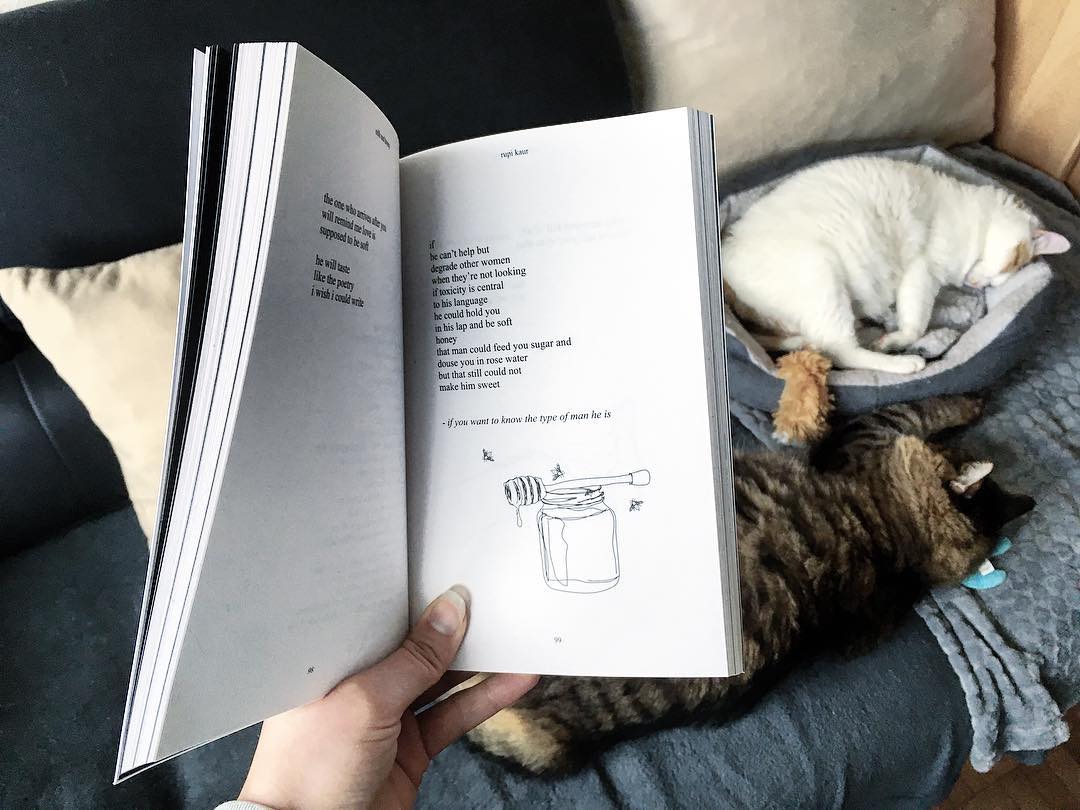 milk and honey
the one who arrives after you
will remind me love is
supposed to be soft
he will taste
like the poetry
i wish i could write
98
rupi kaur
if
he can't help but
degrade other women
when they're not looking
if toxicity is central
to his language
he could hold you
in his lap and be soft
honey
that man could feed you sugar and
douse you in rose water
but that still could not
make him sweet
- if you want to know the type of man he is
99